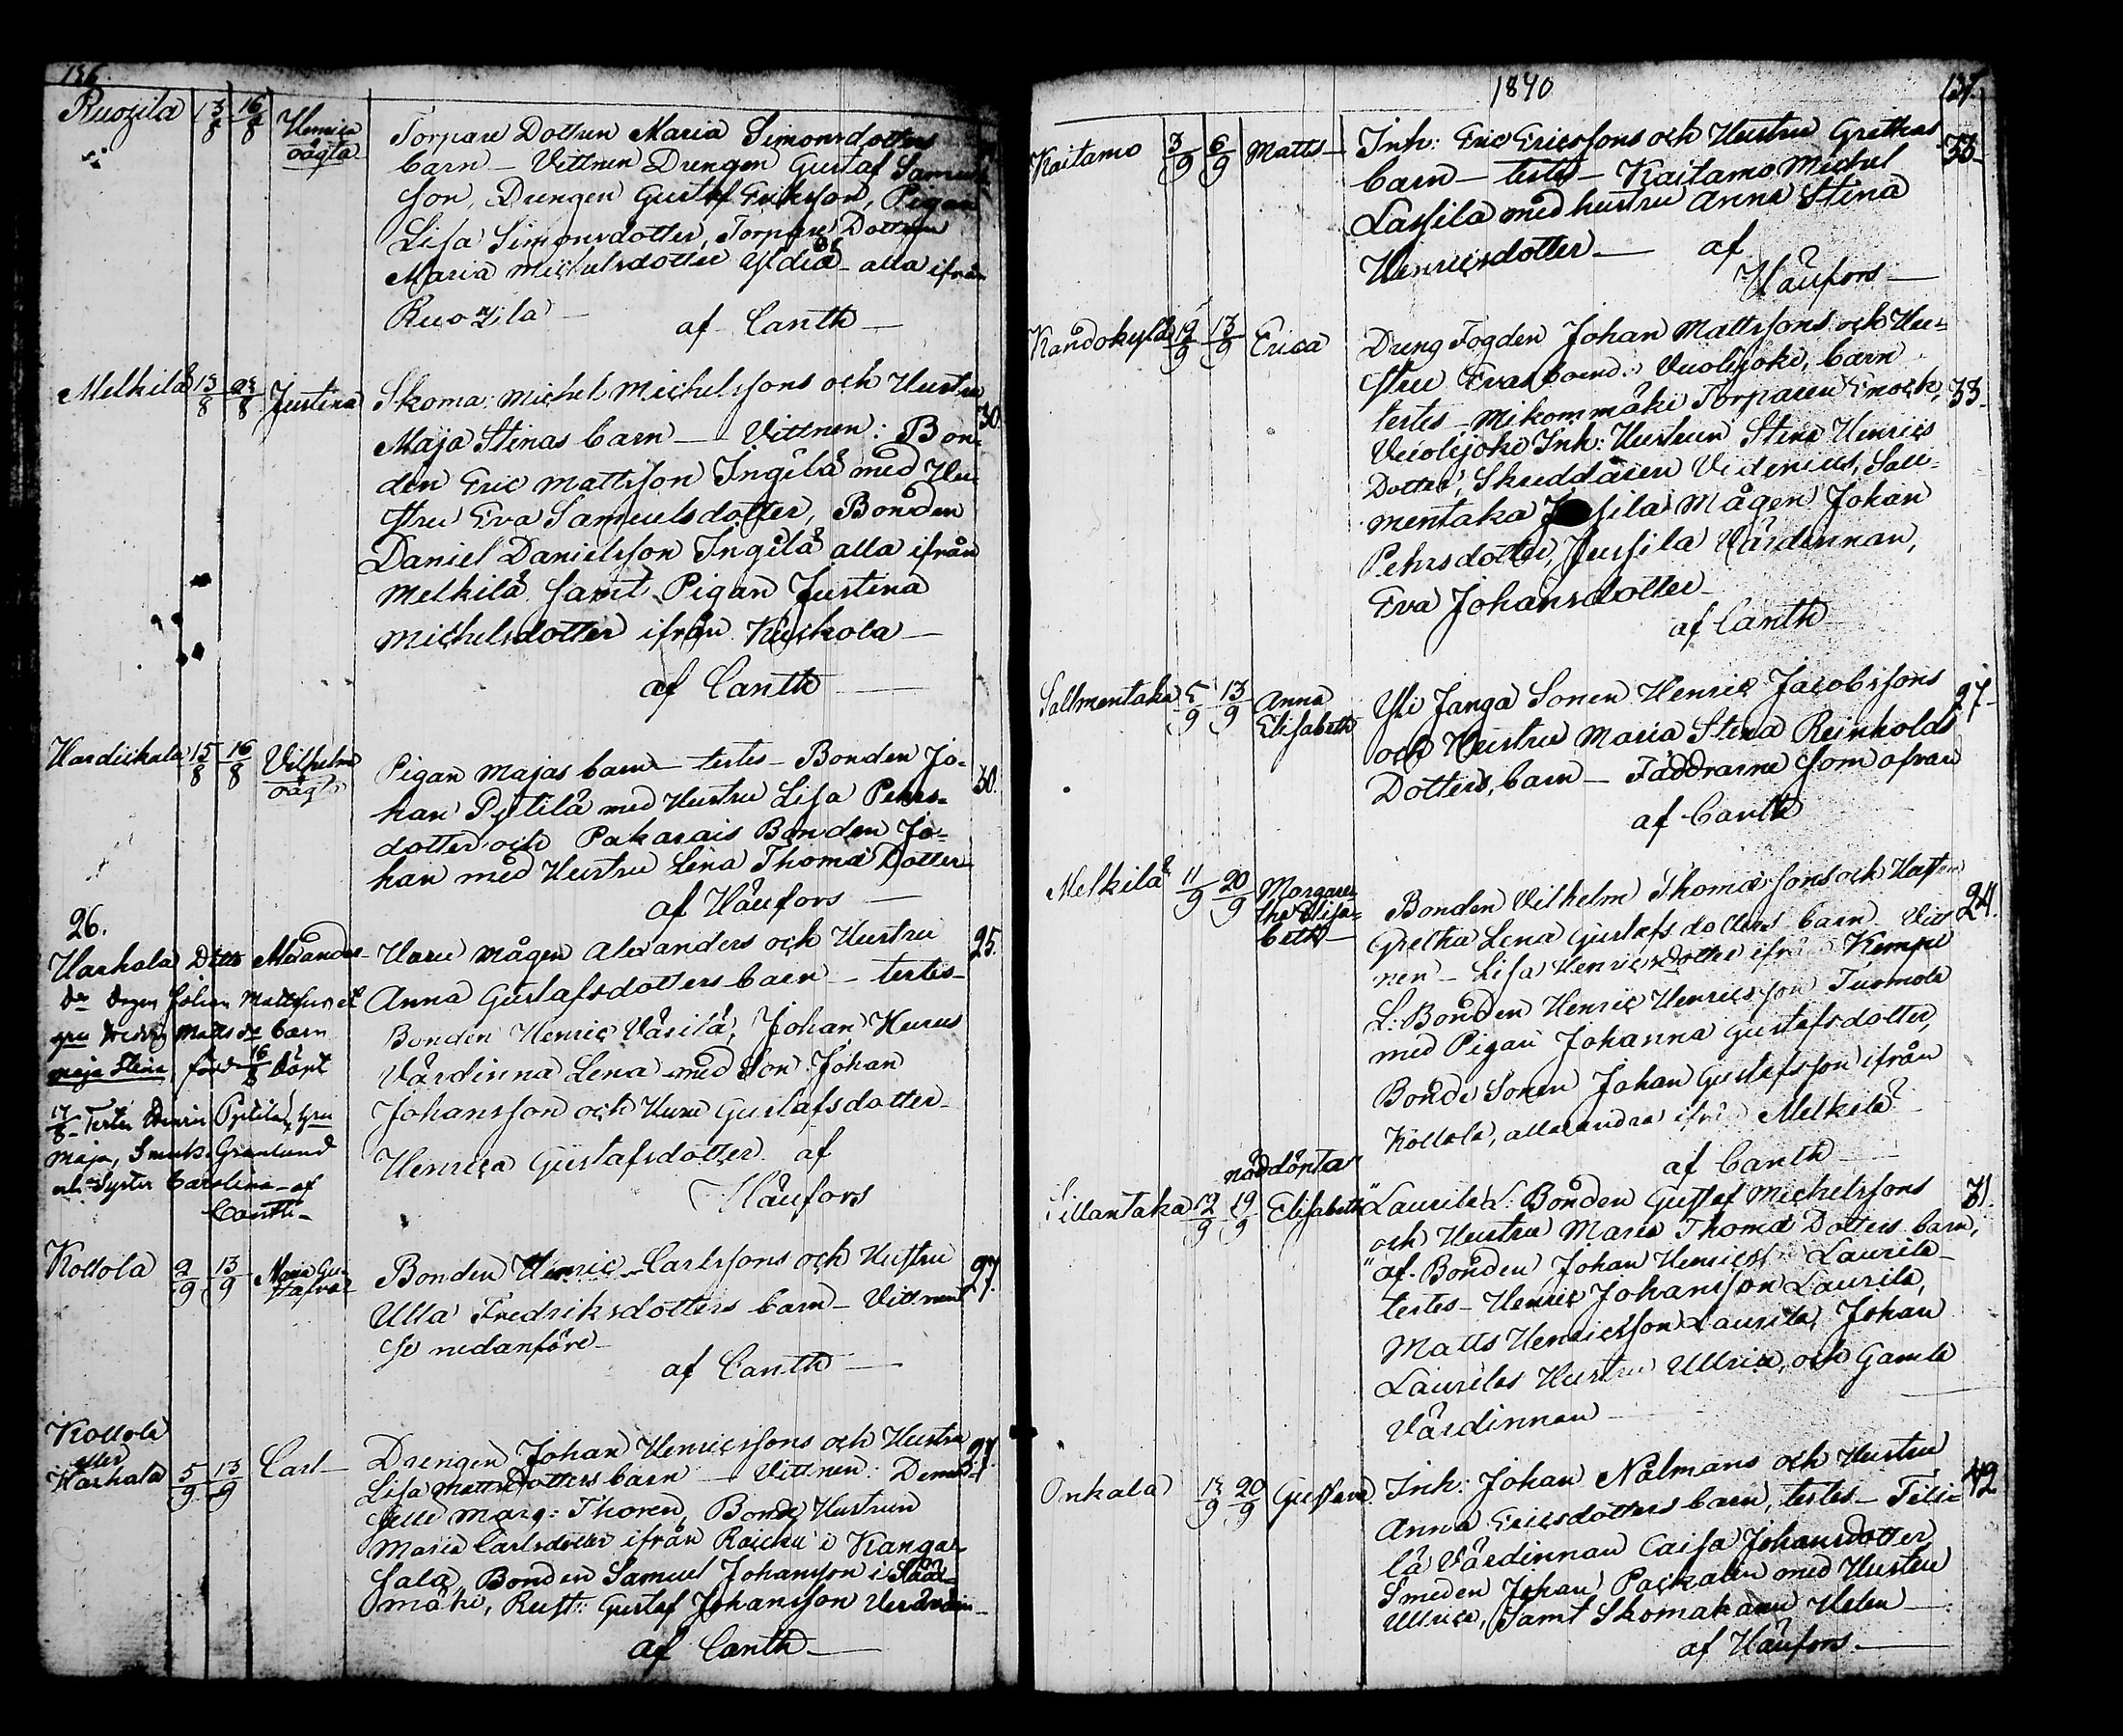 136.
Ruozila 13/8 16/8 Henrica oägta
Torpare Dottren Maria Simonsdotters
barn - Vittnen Drengen Gustaf Samuels-
son, Drengen Gustaf Erikson, Pigan
Lisa Simonsdotter, Torpare Dottren
Maria Michelsdotter - alla ifrån
Ruozila
af Canth
Melkilä 13/8 23/8 Justina
Skoma: Michel Michelssons och Hustru
Maja Stinas barn - Vittnen: Bon- 30.
den Eric Mattsson Ingilä med Hu-
stru Eva Samuelsdotter, Bonden
Daniel Danielsson Ingilä alla ifrån
Melkilä samt Pigan Justina
Michelsdotter ifrån Kuckola
af Canth
Hardickala 15/8 16/8 Vilhelm oägta
Pigan Majas barn - testes - Bonden Jo- 30.
han Pytilä med Hustru Lisa Pehrs-
dotter och Pakarais Bonden Jo-
han med Hustru Lena Thomæ Dotter
af Häufors
26.
Harhala Ditto Alexander
Haru mågen Alexanders och Hustru 25.
Anna Gustafsdotters barn - testes -
Bonden Henric Väsilä, Johan Hurus
Värdinna Lena med Son Johan
Johansson och Huru Gustafsdotter
Henrica Gustafsdotter. af
Häufors
Johan Mattsson
Matts dr barn
Maja Stina född 16/8 döpt
17/8 - Testes Henric Pytilä, hru
Maja, Granlund
och Syster Carolina - af
Canth -
Kollola 2/9 13/9 Maria Gus-
tafva
Bonden Henric Carlssons och Hustru 27.
Ulla Fredriksdotters barn - Vittnen
se nedanföre
af Canth
Kollola
eller
Harhala 5/9 13/9 Carl
Drengen Johan Henricssons och Hustru 27.
Lisa Mattsdotters barn - Vittnen: Demoi-
selle Marg: Thoren, Bonde Hustrun
Maria Carlsdotter ifrån Raicku i Kanga-
sala, Bonden Samuel Johansson i Sää-
mäki, Rust: Gustaf Johansson
af Canth
1840 137.
Kaitamo 3/9 6/9 Matts
Inh: Eric Ericssons och Hustru Grethas 38.
barn - testes - Kaitamo Michel
Lassila med hustru Anna Stina
Henricsdotter - af
Häufors
12/9 13/9 Erica
Dreng Fogden Johan Mattssons och Hu-
stru Evas barn. Vuolijoki, barn
testes - Mikommäki Torparen Enock, 33.
Vuolijoki Inh: Hustrun Stina Henrics
Dotter, Skreddaren Videnius, Sall-
mentaka Jussila Mågen Johan
Pehrsdotter, Jussila Värdinnan,
Eva Johansdotter
af Canth
Sallmentaka 5/9 13/9 Anna
Elisabeth
Yli Janga Sonen Henric Jacobssons 27.
och Hustru Maria Stina Reinholds
Dotters, barn - Faddrarne som ofvan
af Canth
Melkilä 11/9 20/9 Margare-
tha Elisa-
beth
Bonden Vilhelm Thomæ sons och Hustru 24.
Gretha Lena Gustafsdotters barn. Vitt
nen - Lisa Henricsdotter ifrån Kempi
L: Bonden Henric Henricsson Tuomola
med Pigan Johanna Gustafsdotter,
Bonde Sonen Johan Gustafsson ifrån
Kollola, alla andra ifrån Melkilä
af Canth
nöddöpta
Pillantaka 12/9 19/9 Elisabeth
Laurila L: Bonden Gustaf Michelssons 31.
och Hustru Maria Thomæ Dotters barn,
af Bonden Johan Henricsson Laurila
testes - Henric Johansson Laurila,
Matts Henricsson Laurila, Johan
Laurilas Hustru Ullrica, och Gamla
Värdinnan
Onkala 13/9 20/9 Gustava
Inh: Johan Nälmans och Hustru 42
Anna Ericsdotters barn, testes -
lä Värdinnan Caisa Johansdotter
Smeden Johan Packalen med Hustru
Ullrica, samt Skomakaren Helen
af Häufors